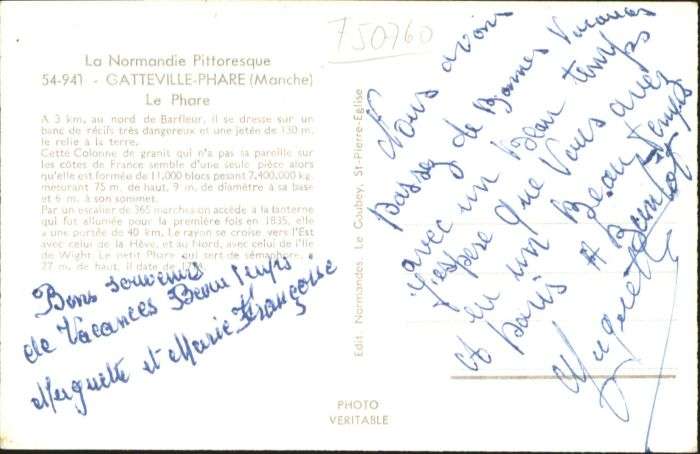 750960
La Normandie Pittoresque
54-941 - GATTEVILLE-PHARE (Manche)
Le Phare
A 3 km, au nord de Barfleur, il se dresse sur un
banc de récifs très dangereux et une jetée de 150 m.
le relie à la terre.
Cette Colonne de granit qui n'a pas sa pareille sur
les côtes de France semble d'une seule pièce alors
qu'elle est formée de 11,000 blocs pesant 7,400,000 kg.
mesurant 75 m. de haut, 9 m, de diamètre à sa base
et 6 m. à son sommet.
Par un escalier de 365 marches on accède à la lanterne
qui fut allumée pour la première fois en 1835, elle
a une portée de 40 km. Le rayon se croise vers l'Est
avec celui de la Hève, et au Nord, avec celui de l'île
de Wight. Le petit Phare qui sert de sémaphore,
27 m, de haut, il date de
Bons souvenirs
de Vacances Beau Temps
Huguette et Marie Françoise
Edit Normandes. Le Goubey, St-Pierre-Eglise
PHOTO
VERITABLE
Nous avons
passez de Bonnes Vacances
avec un Beau temps
J'espère que Vous avez
eu un Beau Temps
A Paris
Huguette